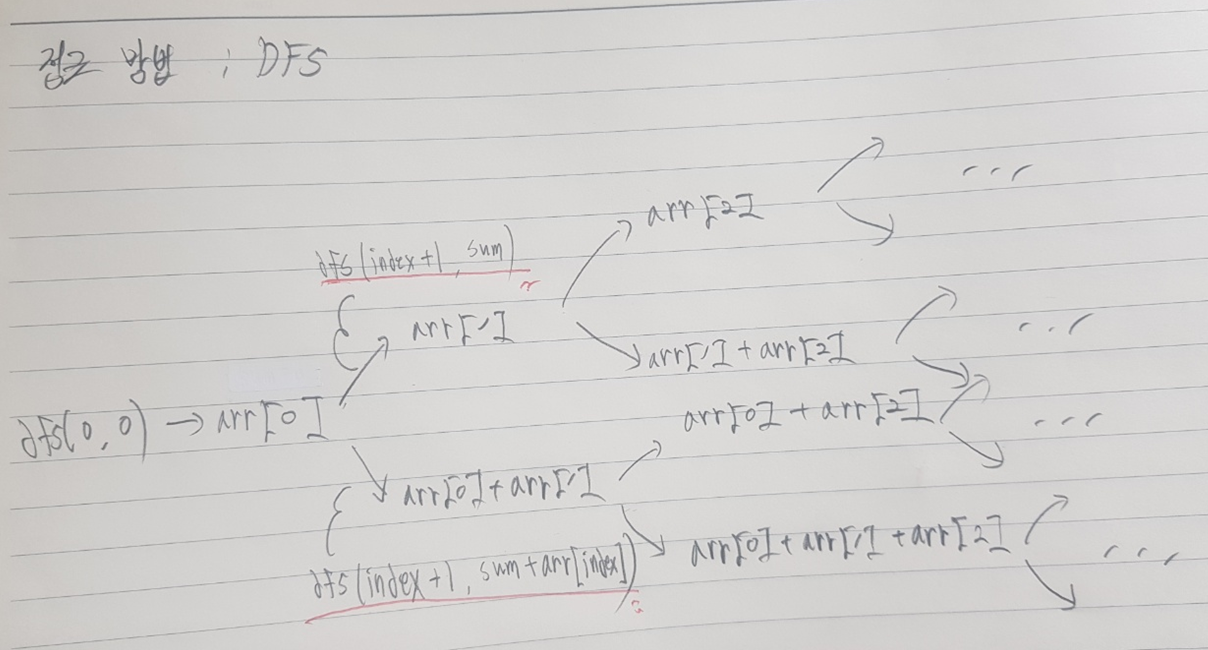 접근 방법 : DFS
arr[2]
dfs(index+1, sum)
arr[1]
arr[1] + arr[2]
dfs(0, 0) → arr[0]
arr[0] + arr[2]
arr[0] + arr[1]
arr[0] + arr[1] + arr[2]
dfs(index+1, sum+arr[index])